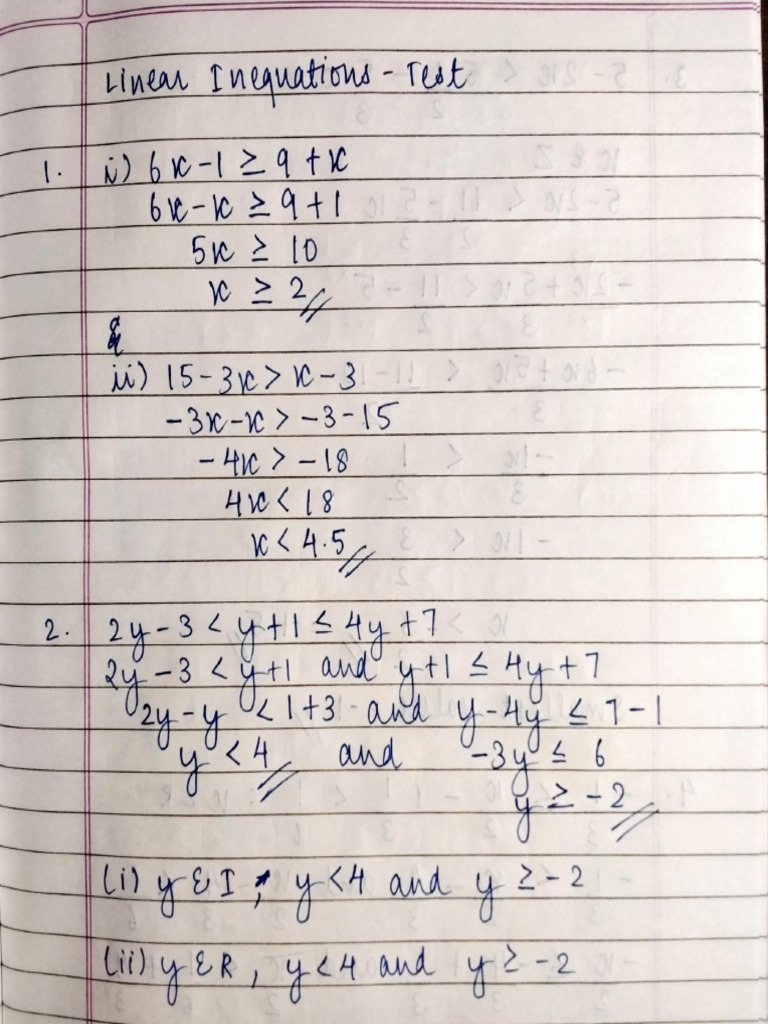 Linear Inequations - Test
1. i) 6x - 1 ≥ 9 + x
6x - x ≥ 9 + 1
5x ≥ 10
x ≥ 2
&
ii) 15 - 3x > x - 3
-3x - x > -3 - 15
-4x > -18
4x < 18
x < 4.5
2. 2y - 3 < y + 1 ≤ 4y + 7
2y - 3 < y + 1 and y + 1 ≤ 4y + 7
2y - y < 1 + 3 and y - 4y ≤ 7 - 1
y < 4 and -3y ≤ 6
y ≥ -2
(i) y ε I, y < 4 and y ≥ -2
(ii) y ε R, y < 4 and y ≥ -2